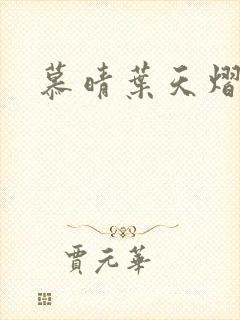 慕晴葉天熠
賈元華